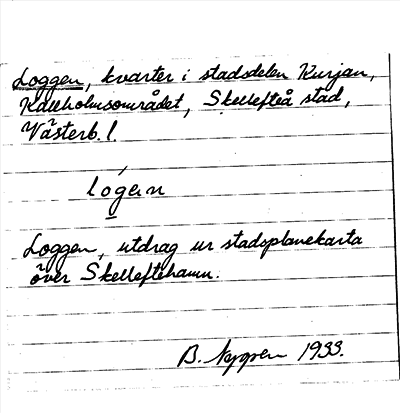 Loggen, kvarter i stadsdelen Kurjan,
Kallholmsområdet, Skellefteå stad,
Västerb. l.
lógen
Loggen, utdrag ur stadsplanekarta
över Skelleftehamn.
B. Nygren 1933.